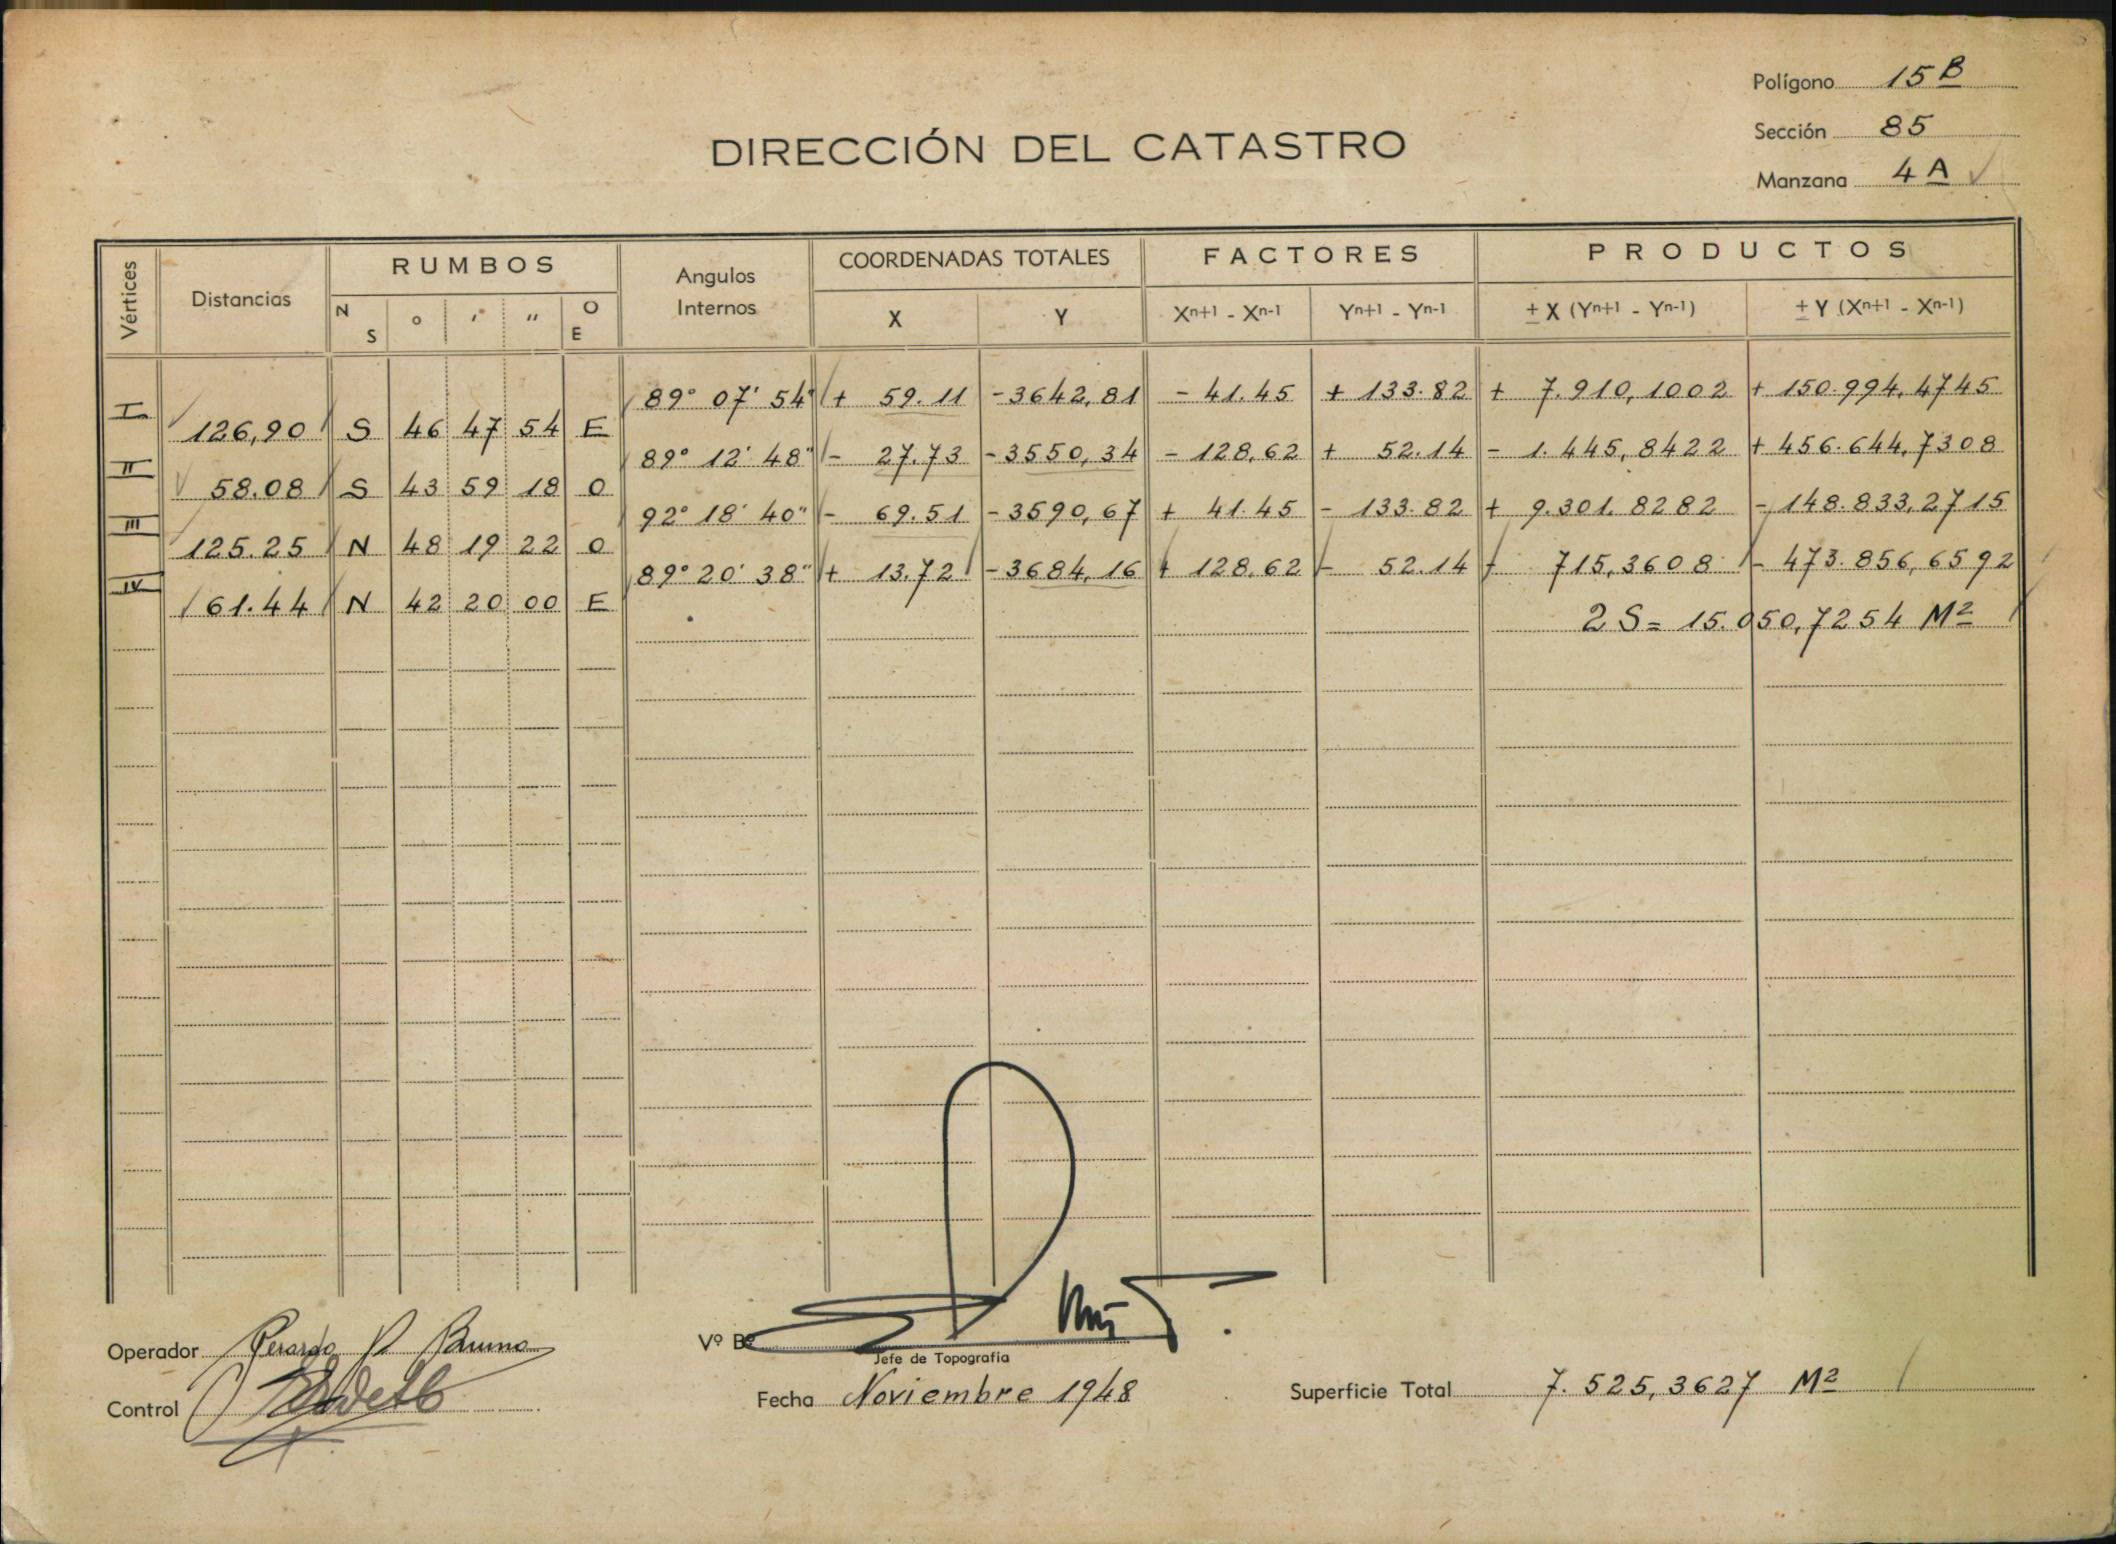 Polígono 15 B
Sección 85
Manzana 4 A
DIRECCIÓN DEL CATASTRO
Vértices Distancias RUMBOS Angulos Internos COORDENADAS TOTALES FACTORES PRODUCTOS
N S ° ' " O E X Y Xn+1 - Xn-1 Yn+1 - Yn-1 ± X (Yn+1 - Yn-1) ± Y (Xn+1 - Xn-1)
89° 07' 54" + 59.11 -3642,81 - 41.45 + 133.82 + 7.910,1002 + 150.994,4745
I 126,90 S 46 47 54 E
89° 12' 48" - 27.73 -3550,34 - 128,62 + 52.14 - 1.445,8422 + 456.644,7308
II 58.08 S 43 59 18 O
92° 18' 40" - 69.51 -3590,67 + 41.45 - 133.82 + 9.301,8282 - 148.833,2715
III 125.25 N 48 19 22 O
89° 20' 38" + 13.72 -3684,16 + 128,62 - 52.14 - 715,3608 - 473.856,6592
IV 61.44 N 42 20 00 E
2 S = 15.050,7254 M2
Operador Gerardo P. Bruno
Control
Vº Bº
Jefe de Topografía
Fecha Noviembre 1948
Superficie Total 7.525,3627 M2